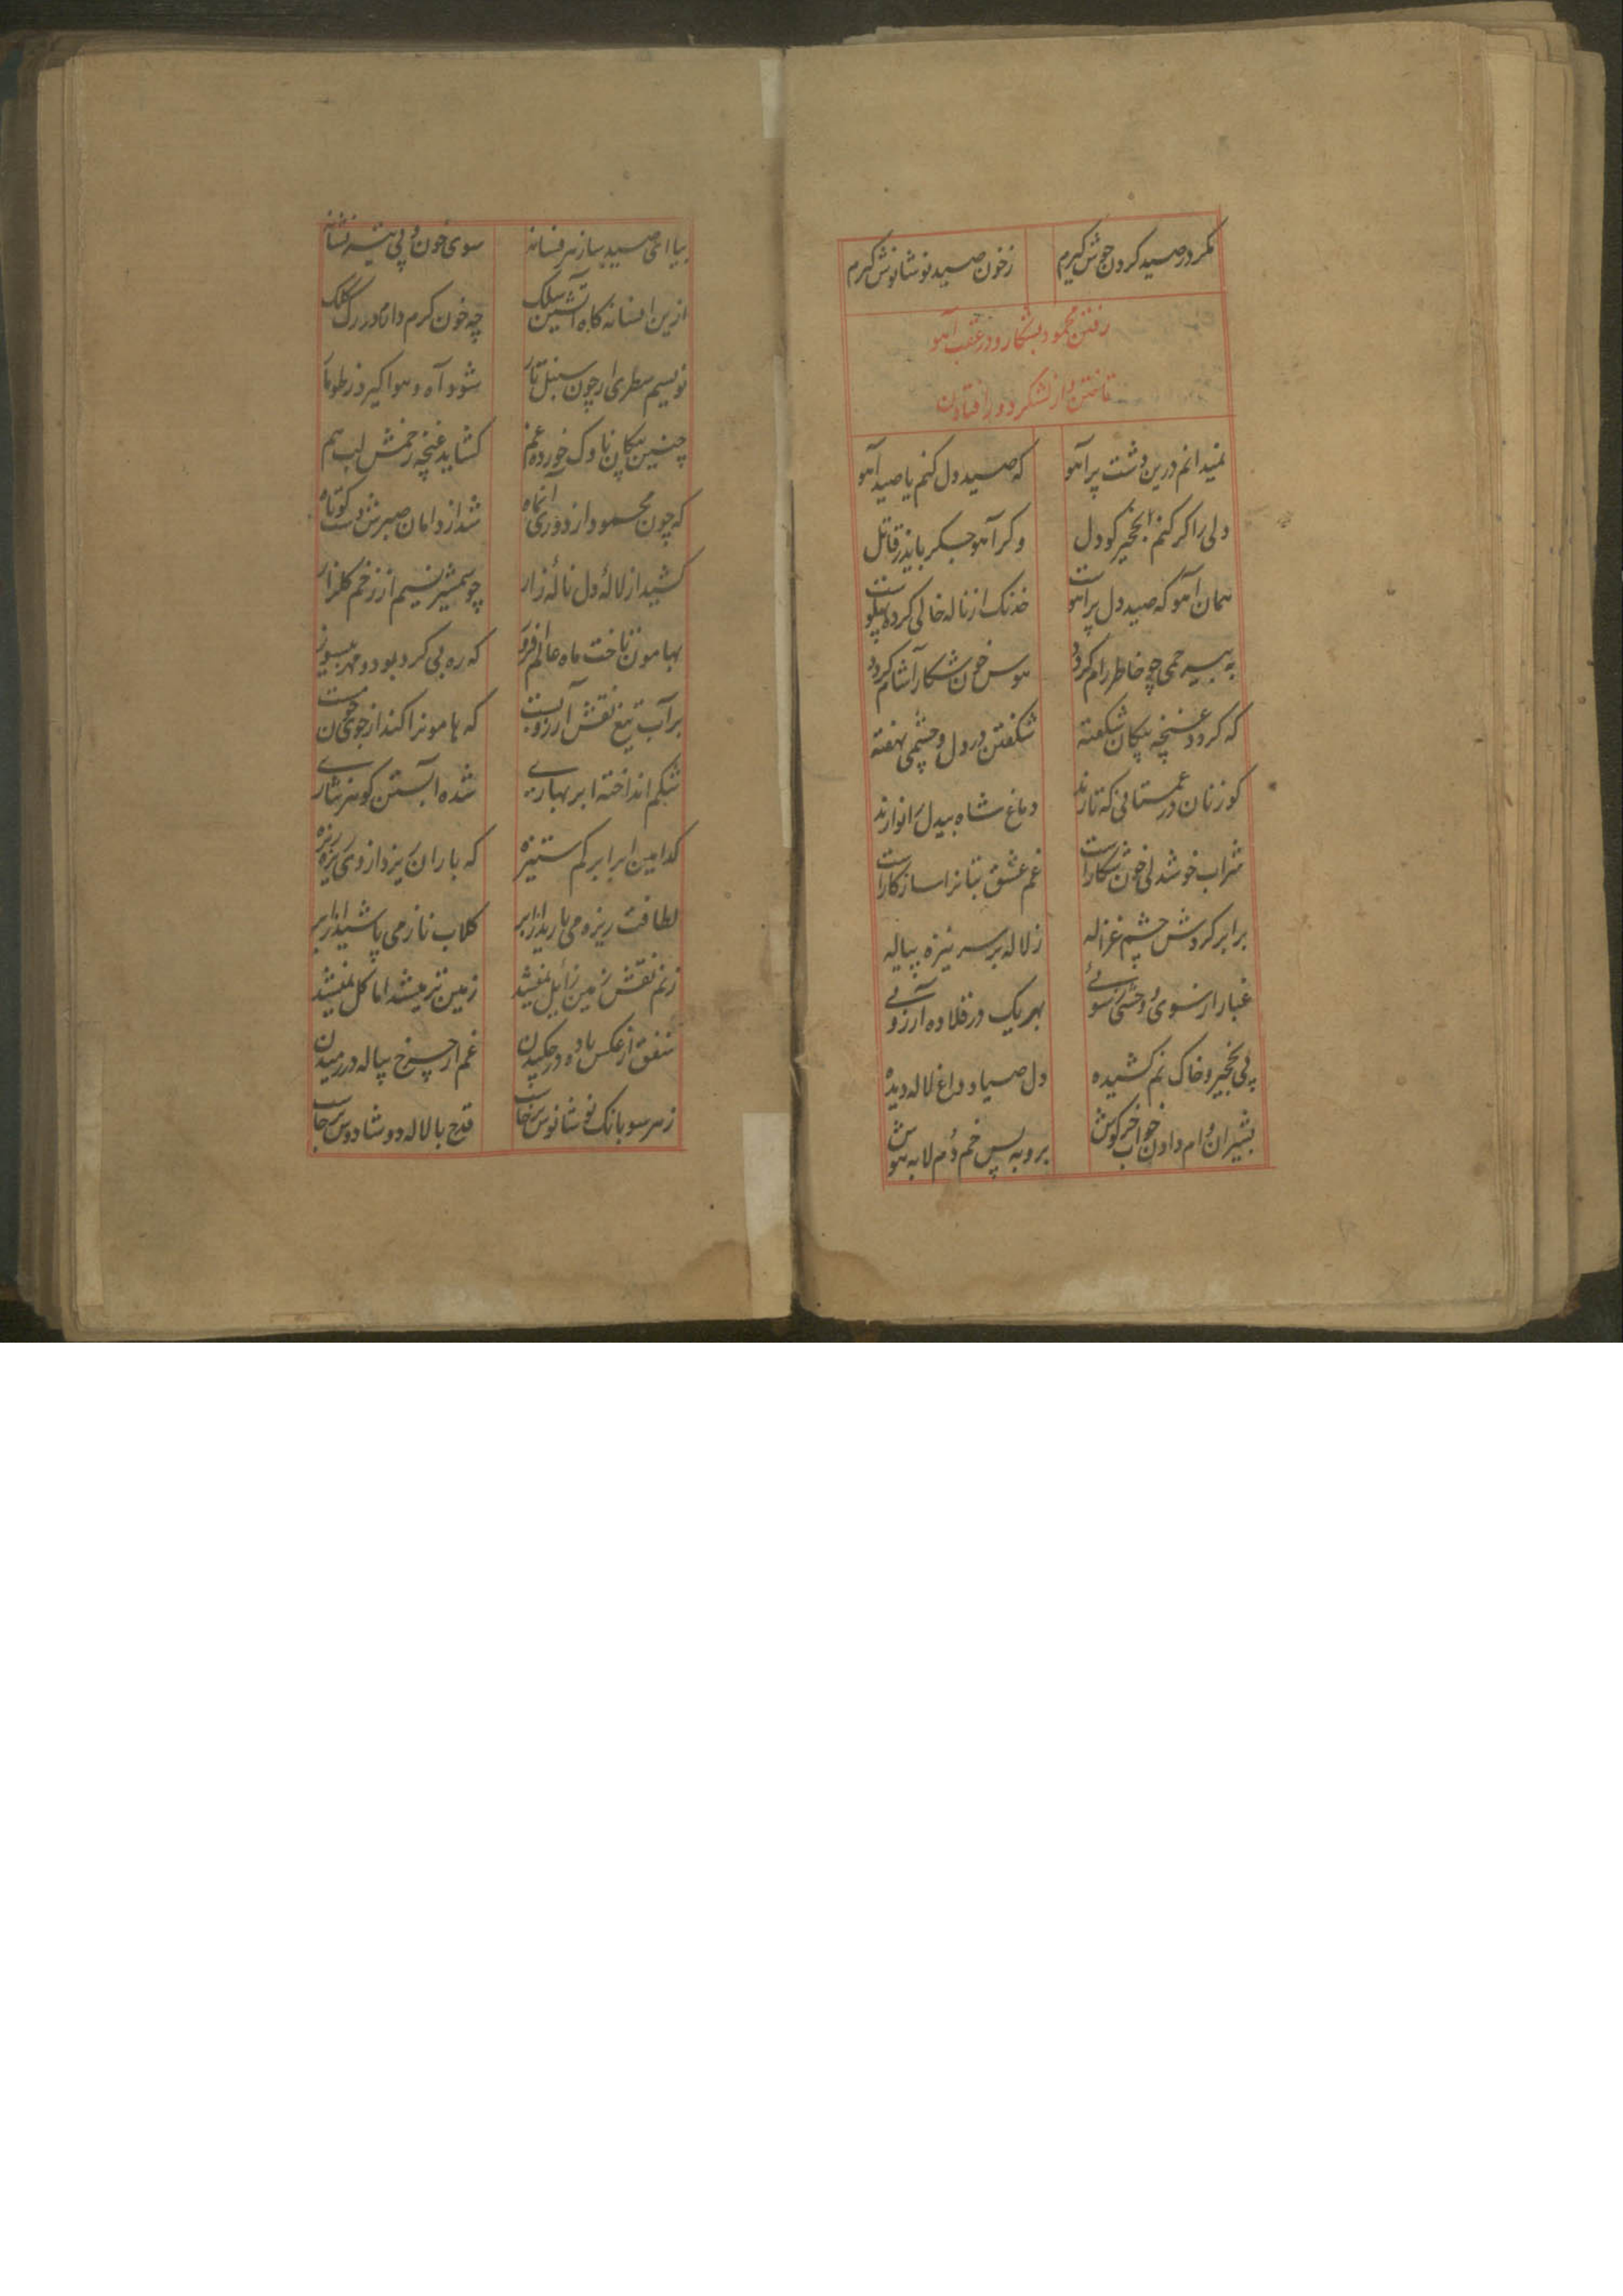 مگر در صید کردن جوش گیرم زخون صید نوشانوش گیرم
رفتن محمود بشکار و در عقب آهو
تاختن و از لشکر دور افتادن
نمیدانم درین دشت پر آهو که صید دل کنم یا صید آهو
دلی را گر کنم نخجیر کو دل وگر آهو جگر باید ز قاتل
همان آهو که صید دل پر آهوست خدنک از ناله خالی کرده پهلوست
به بیرحمی چو خاطر رام گردد هوس خون شکار آشام گردد
که گردد غنچه پیکان شکفته شکفتن در دل و چشمی نهفته
گوزنان در غمستانی که تازند دماغ شاه بیدل را نوازند
شراب خوشدلی خون شکارست غم عشق بتانرا سازکارست
برابر گردش چشم غزاله ز لاله بر سر نیزه پیاله
غبار از سوی و وحشی ز سوئے بهر یک در قلاده آرزوئے
پی نخجیر و خاک نم کشیده دل صیاد داغ لاله دیده
بشیران وام دادن خواب خرگوش بروبه پس خم دم لابه هوش
بیا ای صید ساز هر فسانه سوی خون و پی تیر نشانه
ازین افسانه گاه آتشین سلک چه خون گرم دارد در رگ کلک
نویسم سطری ار چون سنبل تار شود آه و هوا گیرد ز طومار
چنین پیکان ناوک خورده غم گشاید غنچه زخمش لب هم
که چون محمود از دوری آنماه شد از دامان صبرش دست کوتاه
کشید از لاله دل ناله زار چو شمشیر نسیم از زخم گلزار
بهامون تاخت ماه عالم افروز که ره بی گرد بود و مهر بیسوز
بر آب تیغ نقش آرزو بست که هامونرا کند از جوی خون مست
شکم انداخته ابر بهارے شده آبستن گوهر نثارے
کدامین ابر ابر کم ستیزه که باران ریزد از وی ریزه ریزه
لطافت ریزه می بارید از ابر گلاب ناز می پاشید از ابر
زنم نقش زمین زایل نمیشد زمین تر میشد اما گل نمیشد
شفق از عکس باده در چکیدن غم از چرخ پیاله در رمیدن
ز هر سو بانک نوشانوش برخاست قدح با لاله دوشادوش برخاست